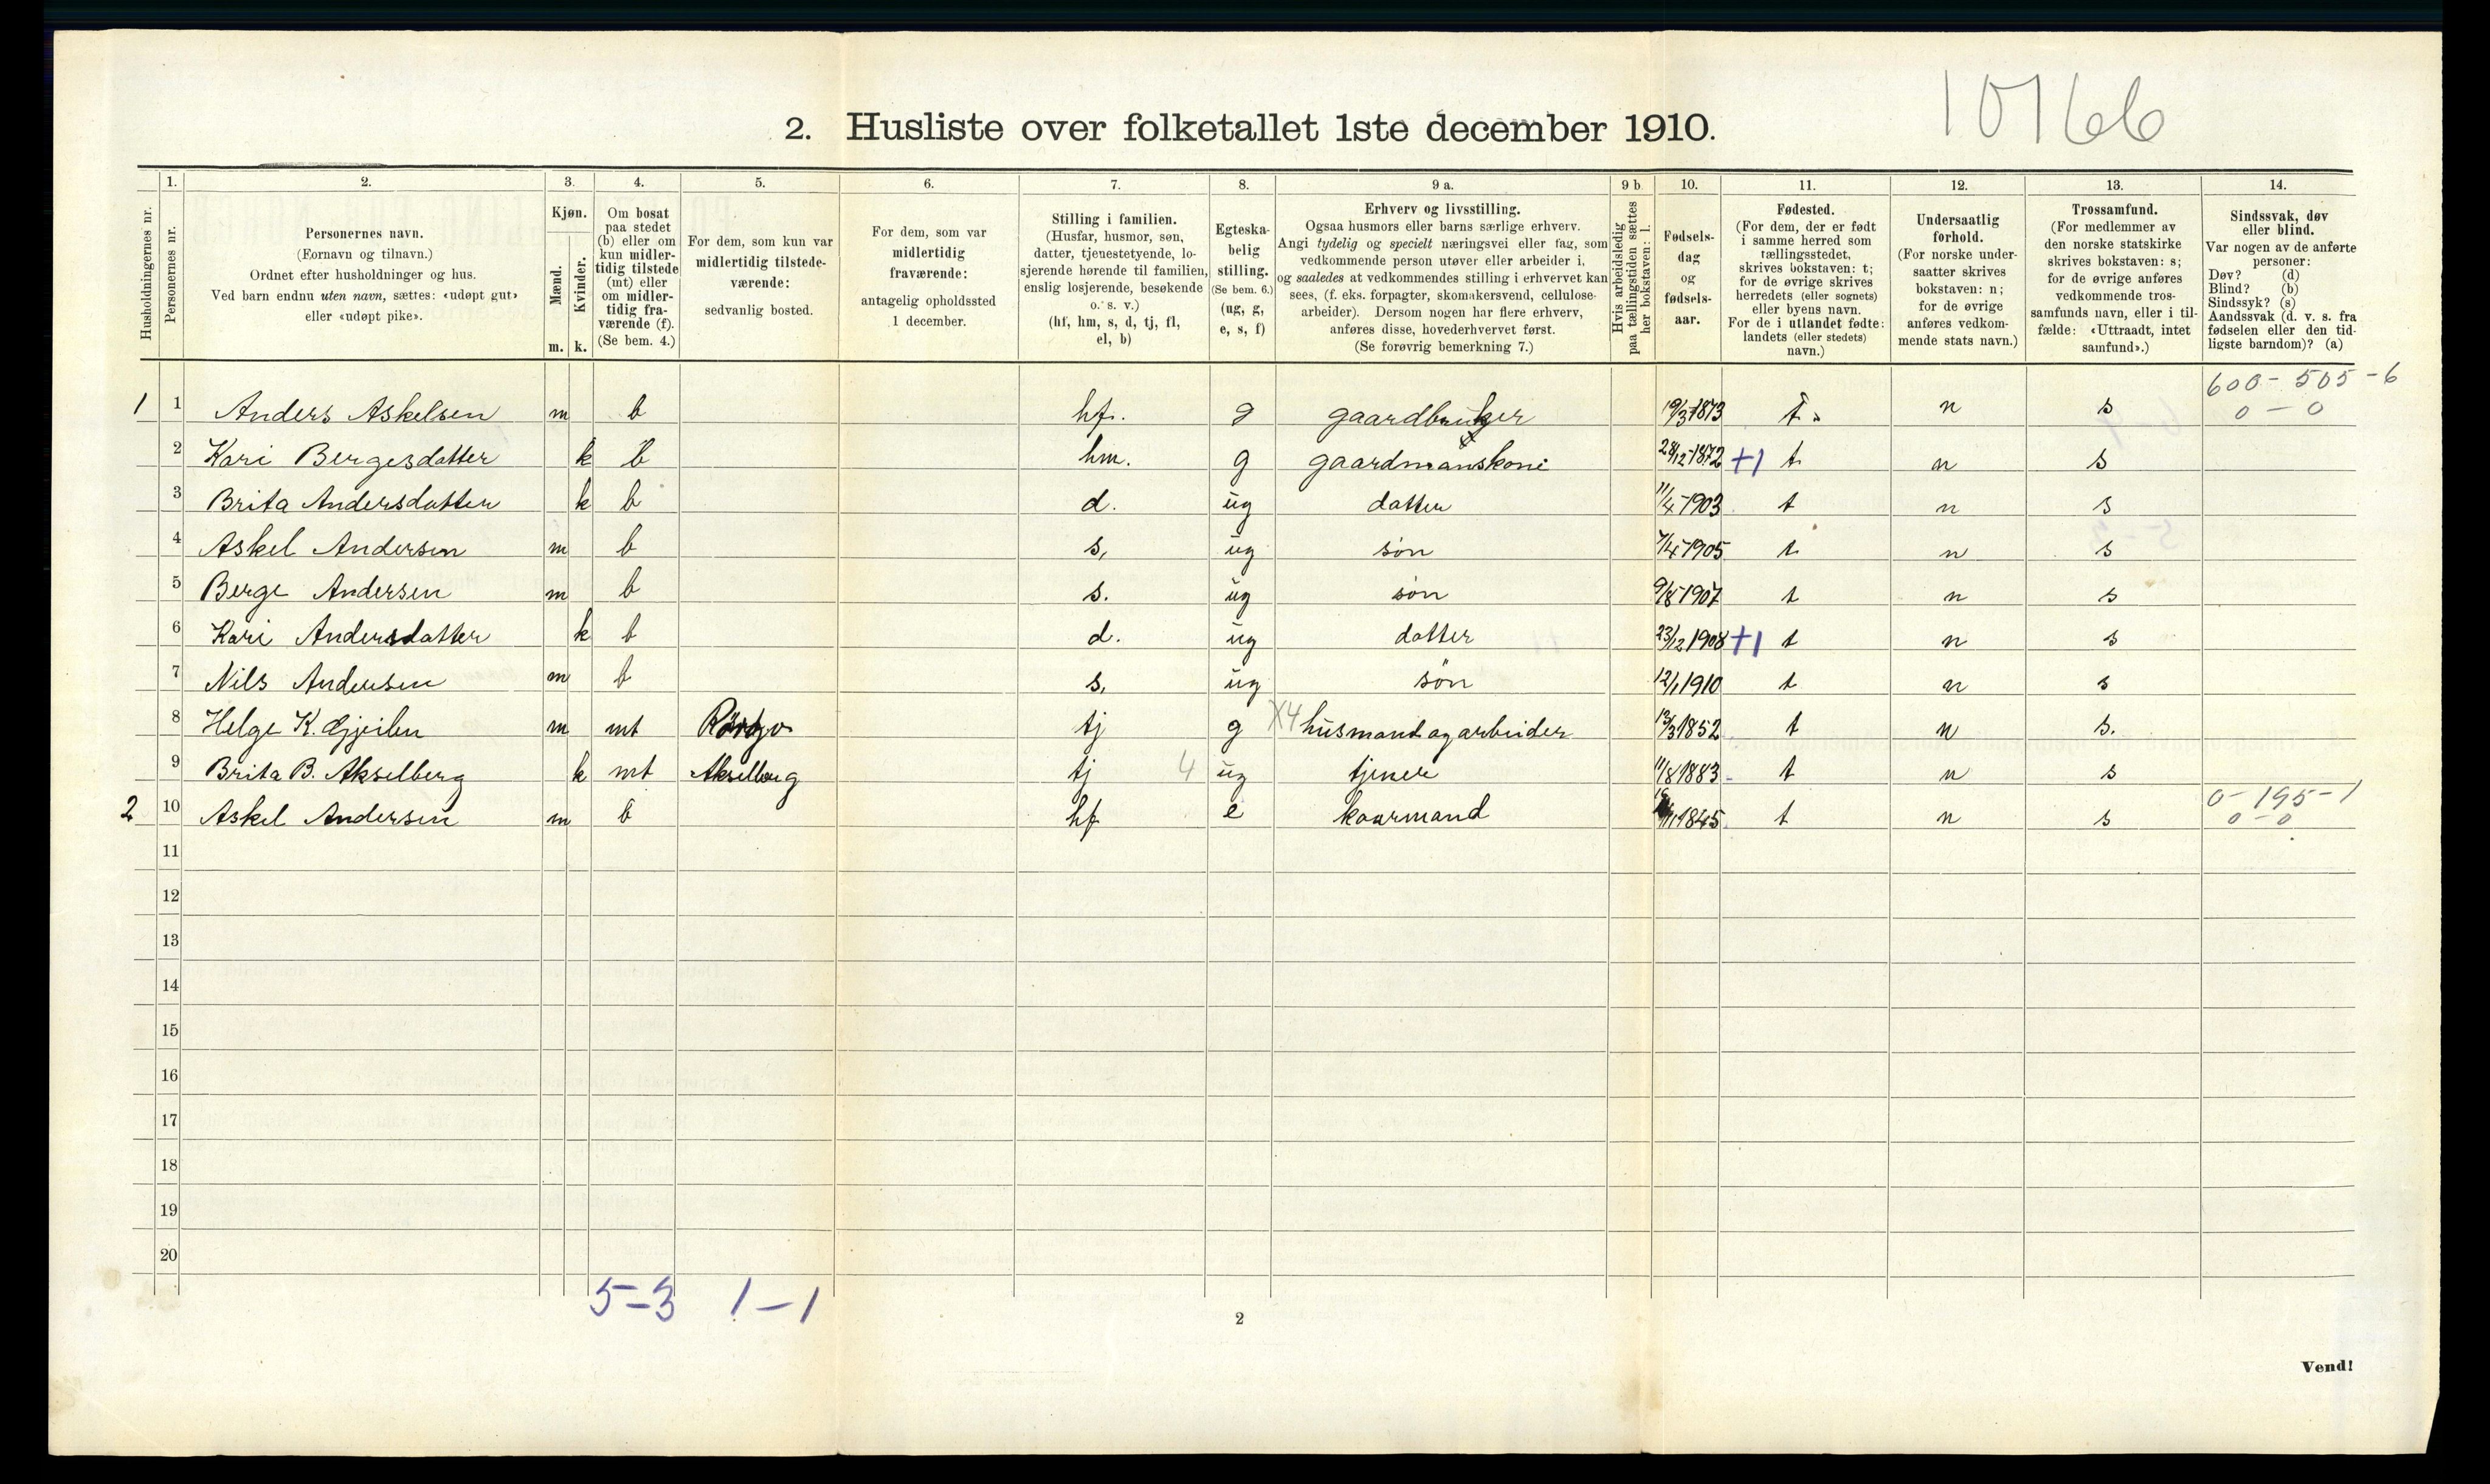 10166
2. Husliste over folketallet 1ste december 1910.
Husholdningernes nr.
1.
Personernes nr.
2.
Personernes navn.
(Fornavn og tilnavn.)
Ordnet efter husholdninger og hus.
Ved barn endnu uten navn, sættes: «udøpt gut»
eller «udøpt pike».
3.
Kjøn.
Mænd.
Kvinder.
m. k.
4.
Om bosat
paa stedet
(b) eller om
kun midler-
tidig tilstede
(mt) eller
om midler-
tidig fra-
værende (f).
(Se bem. 4.)
5.
For dem, som kun var
midlertidig tilstede-
værende:
sedvanlig bosted.
6.
For dem, som var
midlertidig
fraværende:
antagelig opholdssted
1 december.
7.
Stilling i familien.
(Husfar, husmor, søn,
datter, tjenestetyende, lo-
sjerende hørende til familien,
enslig losjerende, besøkende
o. s. v.)
(hf, hm, s, d, tj, fl,
el, b)
8.
Egteska-
belig
stilling.
(Se bem. 6.)
(ug, g,
e, s, f)
9 a.
Erhverv og livsstilling.
Ogsaa husmors eller barns særlige erhverv.
Angi tydelig og specielt næringsvei eller fag, som
vedkommende person utøver eller arbeider i,
og saaledes at vedkommendes stilling i erhvervet kan
sees, (f. eks. forpagter, skomakersvend, cellulose-
arbeider). Dersom nogen har flere erhverv,
anføres disse, hovederhvervet først.
(Se forøvrig bemerkning 7.)
9 b
Hvis arbeidsledig
paa tællingstiden sættes
her bokstaven: l.
10.
Fødsels-
dag
og
fødsels-
aar.
11.
Fødested.
(For dem, der er født
i samme herred som
tællingsstedet,
skrives bokstaven: t;
for de øvrige skrives
herredets (eller sognets)
eller byens navn.
For de i utlandet fødte:
landets (eller stedets)
navn.)
12.
Undersaatlig
forhold.
(For norske under-
saatter skrives
bokstaven: n;
for de øvrige
anføres vedkom-
mende stats navn.)
13.
Trossamfund.
(For medlemmer av
den norske statskirke
skrives bokstaven: s;
for de øvrige anføres
vedkommende tros-
samfunds navn, eller i til-
fælde: «Uttraadt, intet
samfund».)
14.
Sindssvak, døv
eller blind.
Var nogen av de anførte
personer:
Døv? (d)
Blind? (b)
Sindssyk? (s)
Aandssvak (d. v. s. fra
fødselen eller den tid-
ligste barndom)? (a)
600 - 505 - 6
1 1 Anders Askelsen m b hf. g gaardbruker 19/3 1873 t. n s 0 - 0
2 Kari Bergesdatter k b hm. g gaardmanskone 28/12 1872 +1 t n s
3 Brita Andersdatter k b d. ug datter 11/4 1903 t n s
4 Askel Andersen m b s, ug søn 7/4 1905 t n s
5 Berge Andersen m b s. ug søn 9/8 1907 t n s
6 Kari Andersdatter k b d. ug datter 23/12 1908 +1 t n s
7 Nils Andersen m b s, ug søn 12/1 1910 t n s
8 Helge K. m mt tj g X4 husmand og arbeider 13/3 1852 t n s.
9 Brita B. Akselberg k mt Akselberg tj 4 ug tjener 11/8 1883 - t n s
0 - 195 - 1
2 10 Askel Andersen m b hf e kaarmand 1845 t n s 0 - 0
11
12
13
14
15
16
17
18
19
20
5 - 3 1 - 1
2
Vend!